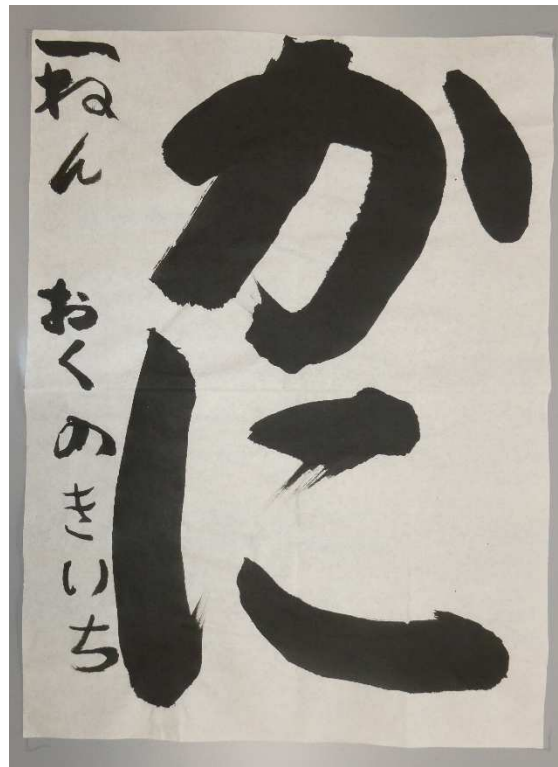 かに
一ねん おくのきいち